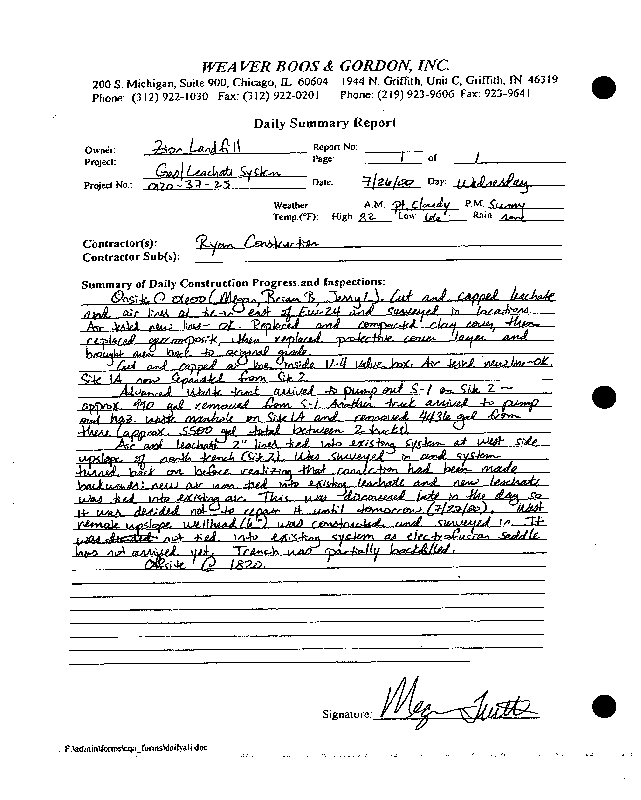 WEAVER BOOS & GORDON, INC.
200 S. Michigan, Suite 900, Chicago, IL 60604 1944 N. Griffith, Unit C, Griffith, IN 46319
Phone: (312) 922-1030 Fax: (312) 922-0201 Phone: (219) 923-9606 Fax: 923-9641
Daily Summary Report
Owner: Zion Landfill Report No:
Project: Gas/Leachate System Page: 1 of 1
Project No.: 020-37-25 Date: 7/26/00 Day: Wednesday
Weather A.M. Pt. Cloudy P.M. Sunny
Temp.(°F): High 82 Low Rain none
Contractor(s): Ryan Construction
Contractor Sub(s):
Summary of Daily Construction Progress and Inspections:
Onsite @ (Megan, Brian B, Jerry L). Cut and capped leachate
and air lines at tie-in east of EW-24 and surveyed in locations.
Air tested new lines - OK. Replaced and compacted clay cover, then
replaced geocomposite, then replaced protective cover layer and
brought area back to original grade.
Cut and capped at tee inside V-4 valve box. Air tested new line-OK.
Site 1A now separated from Site 2.
Advanced Waste truck arrived to pump out S-1 on Site 2 ~
approx. 990 gal removed from S-1. Another truck arrived to pump
out haz. waste manhole on Site 1A and removed 4436 gal from
there (approx. 5500 gal total between 2 trucks).
Air and leachate 2" lines tied into existing system at west side
upslope of north trench (Site 2). Was surveyed in and system
turned back on before realizing that connection had been made
backwards: new air was tied into existing leachate and new leachate
was tied into existing air. This was discovered late in the day so
it was decided not to repair it until tomorrow (7/27/00). West
remote upslope wellhead (6") was constructed and surveyed in. It
was not tied into existing system as electrofusion saddle
has not arrived yet. Trench was partially backfilled.
Offsite @ 1820.
Signature: Meg
F:\admin\forms\cqa_forms\dailyall.doc